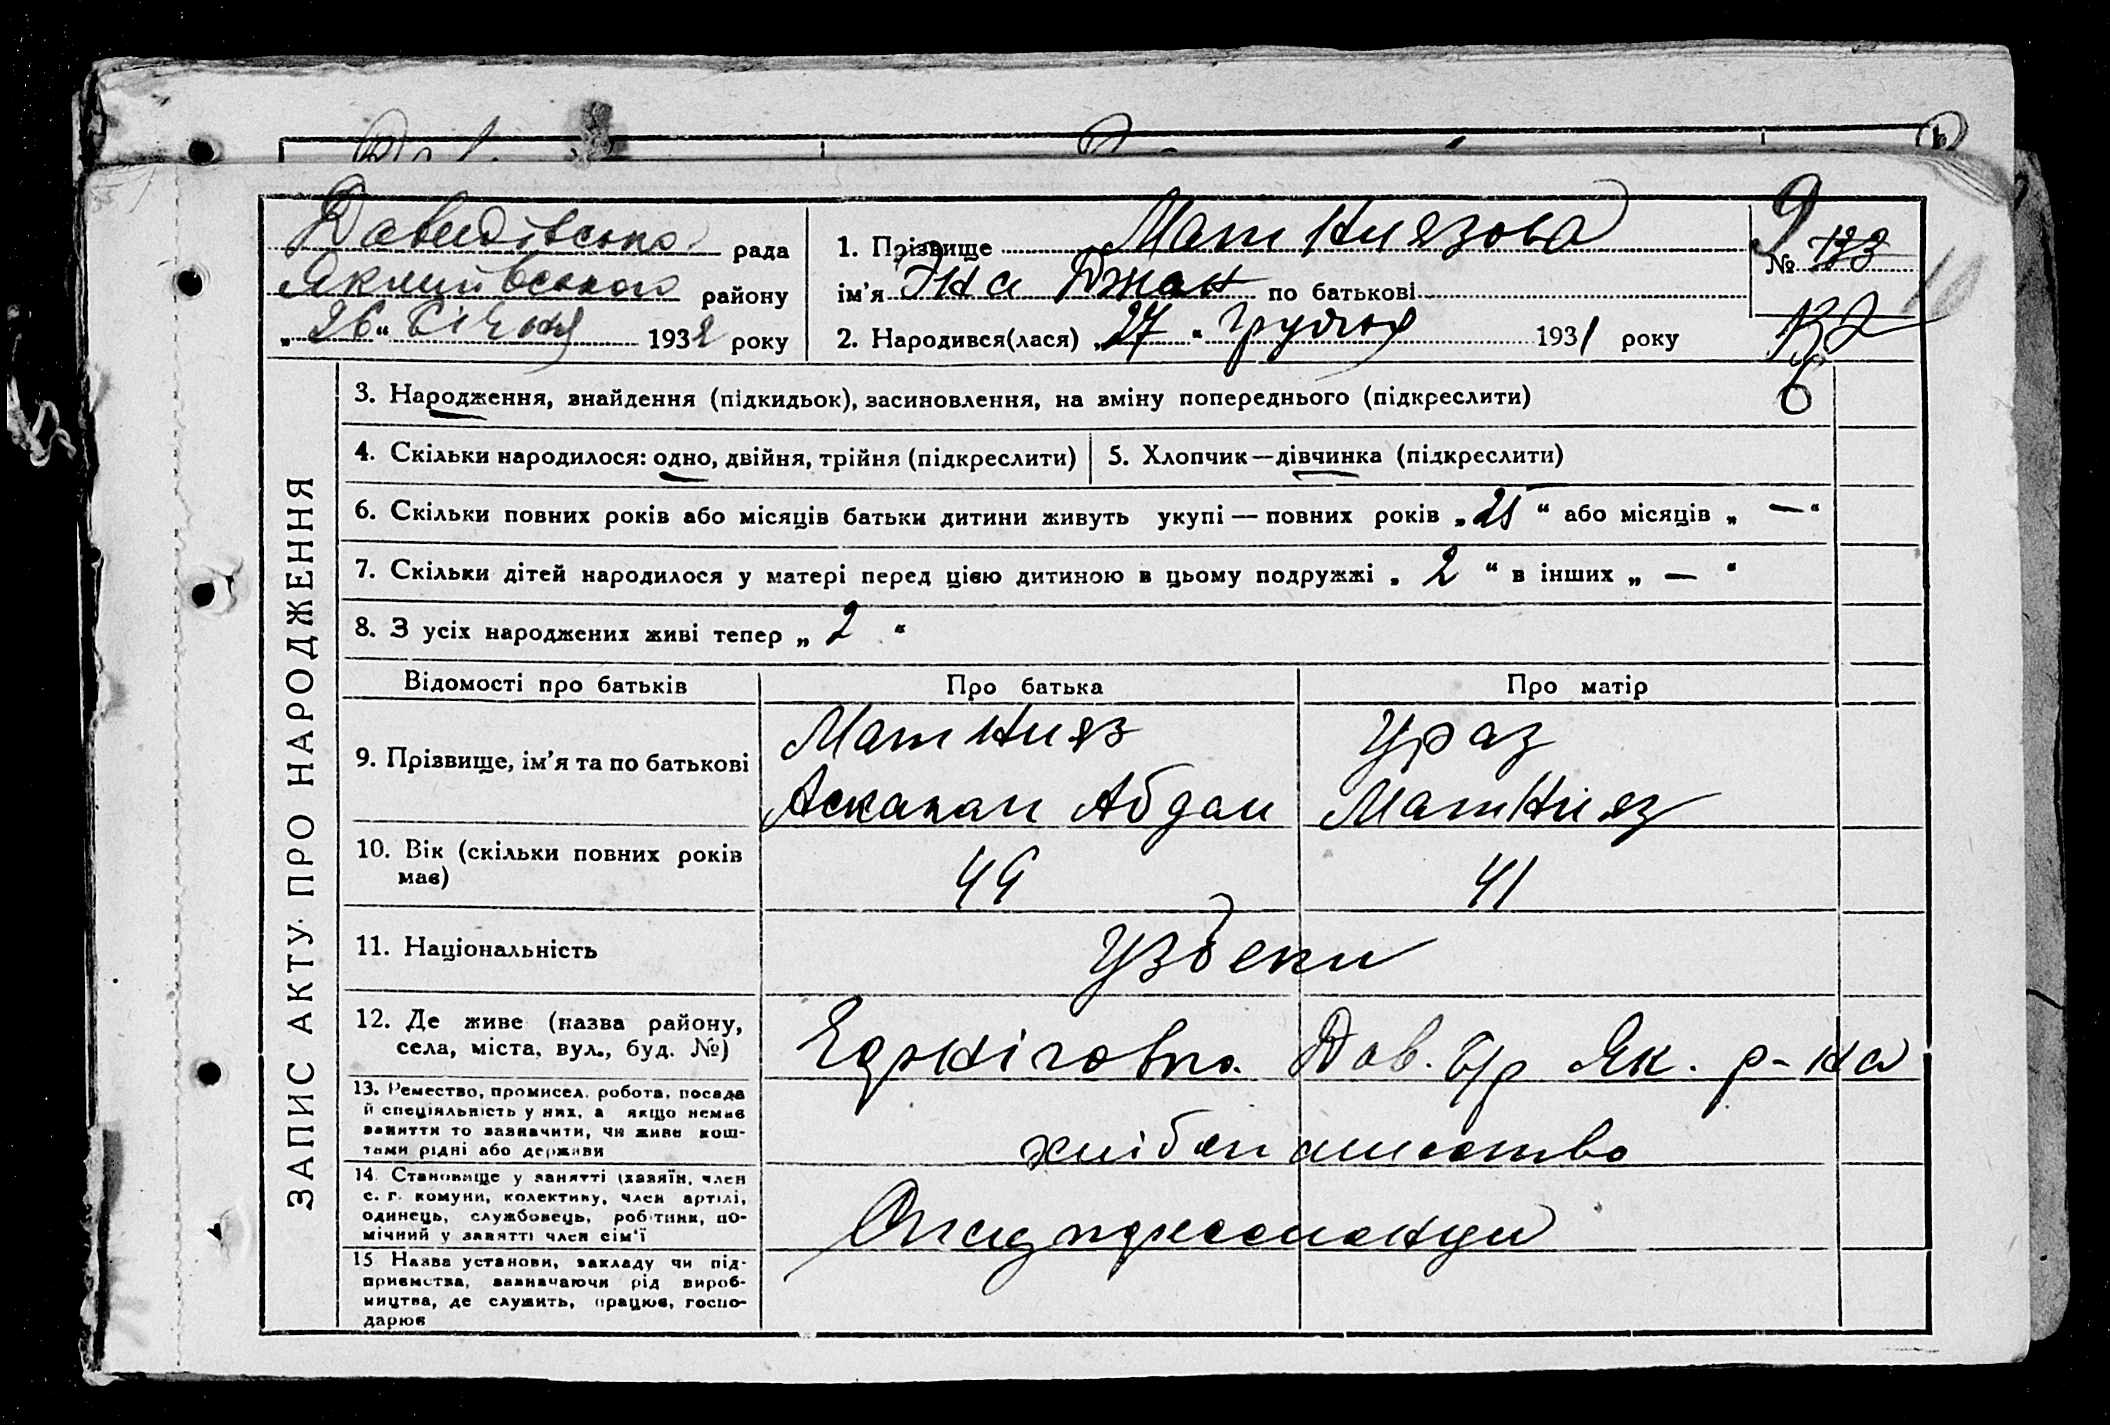 Давидівська рада
Якимівського району
„26" Січня 1932 року
1. Прізвище МатНиязова
ім'я Эна Джан по батькові
2. Народився(лася) „27" грудня 1931 року
№ 133
9
132
10
ЗАПИС АКТУ ПРО НАРОДЖЕННЯ
3. Народження, знайдення (підкидьок), засиновлення, на зміну попереднього (підкреслити)
4. Скільки народилося: одно, двійня, трійня (підкреслити)
5. Хлопчик—дівчинка (підкреслити)
6. Скільки повних років або місяців батьки дитини живуть укупі — повних років „25" або місяців „—"
7. Скільки дітей народилося у матері перед цією дитиною в цьому подружжі „2" в інших „—"
8. З усіх народжених живі тепер „2"
Відомості про батьків
Про батька
Про матір
9. Прізвище, ім'я та по батькові
МатНияз
Аскапан Абдал
Ураз
МатНияз
10. Вік (скільки повних років має)
44
41
11. Національність
Узбеки
12. Де живе (назва району, села, міста, вул., буд. №)
Дав. с/р Як. р-на
13. Ремество, промисел, робота, посада й спеціяльність у них, а якщо немає заняття то зазначити, чи живе коштами рідні або держави
хліборобство
14. Становище у занятті (хазяїн, член с. г. комуни, колективу, член артілі, одинець, службовець, робітник, помічний у занятті член сім'ї
15. Назва установи, закладу чи підприємства, зазначаючи рід виробництва, де служить, працює, господарює